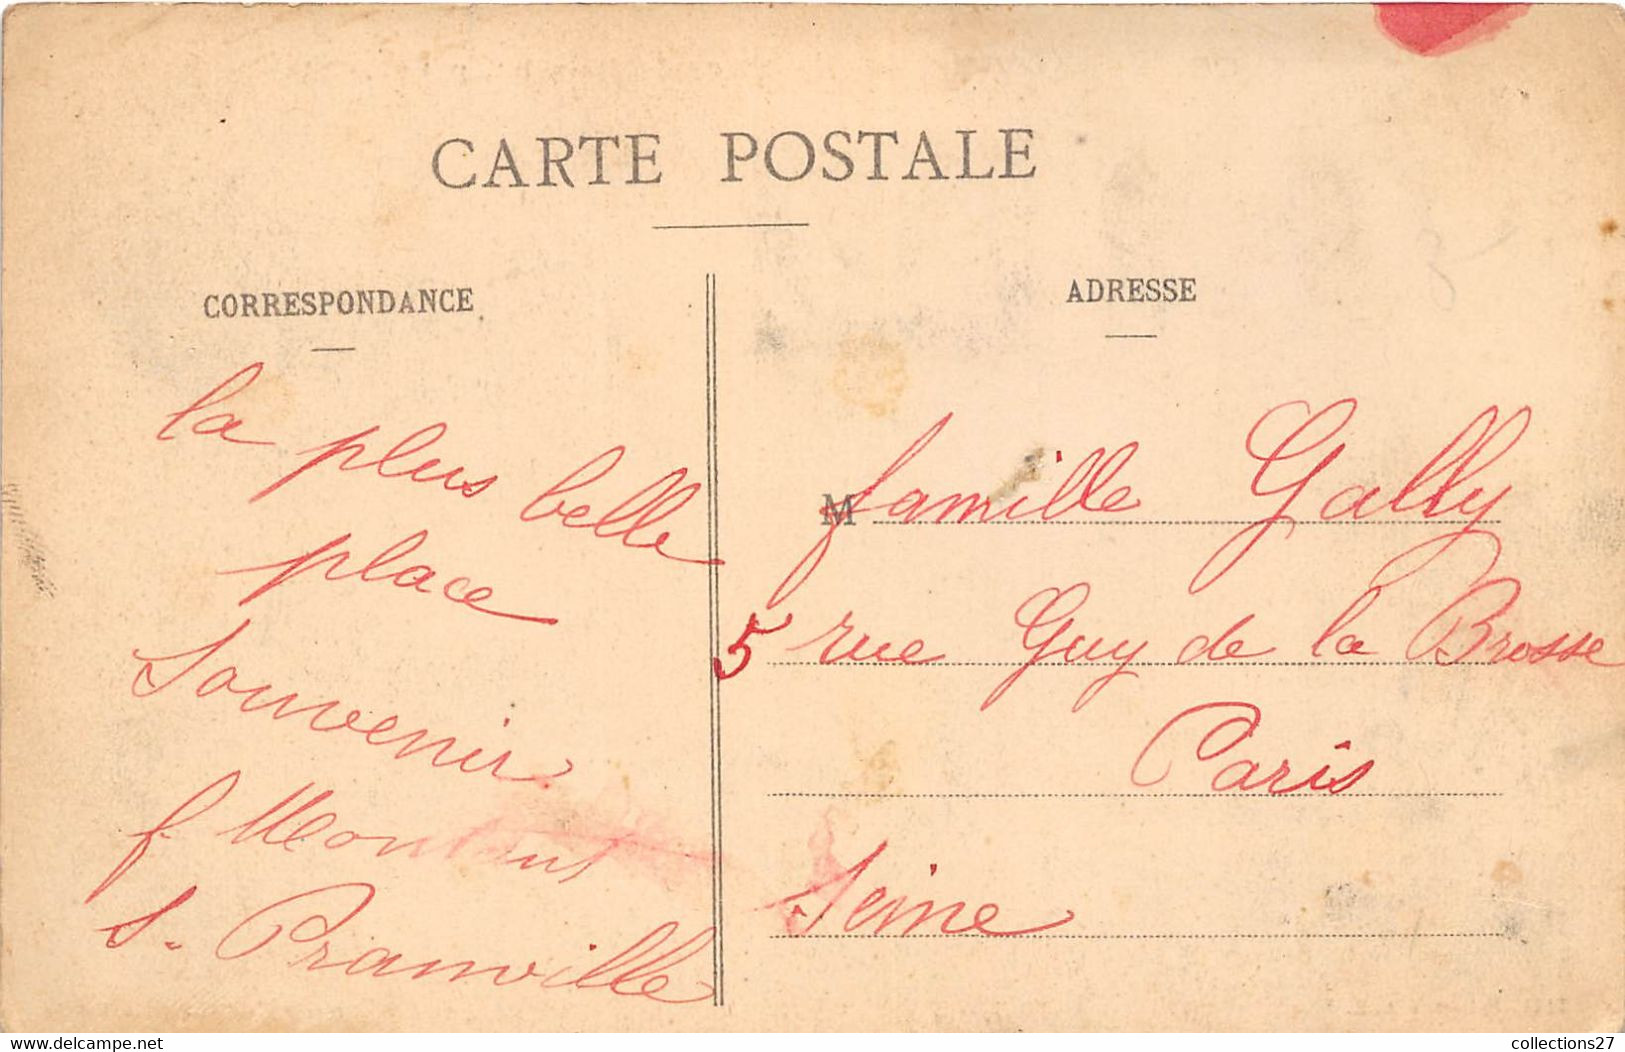 CARTE POSTALE
CORRESPONDANCE
la plus belle
place
Souvenir
f
S. Pranville
ADRESSE
M famille Gally
5 rue Guy de la Brosse
Paris
Seine
www.delcampe.net
collections27